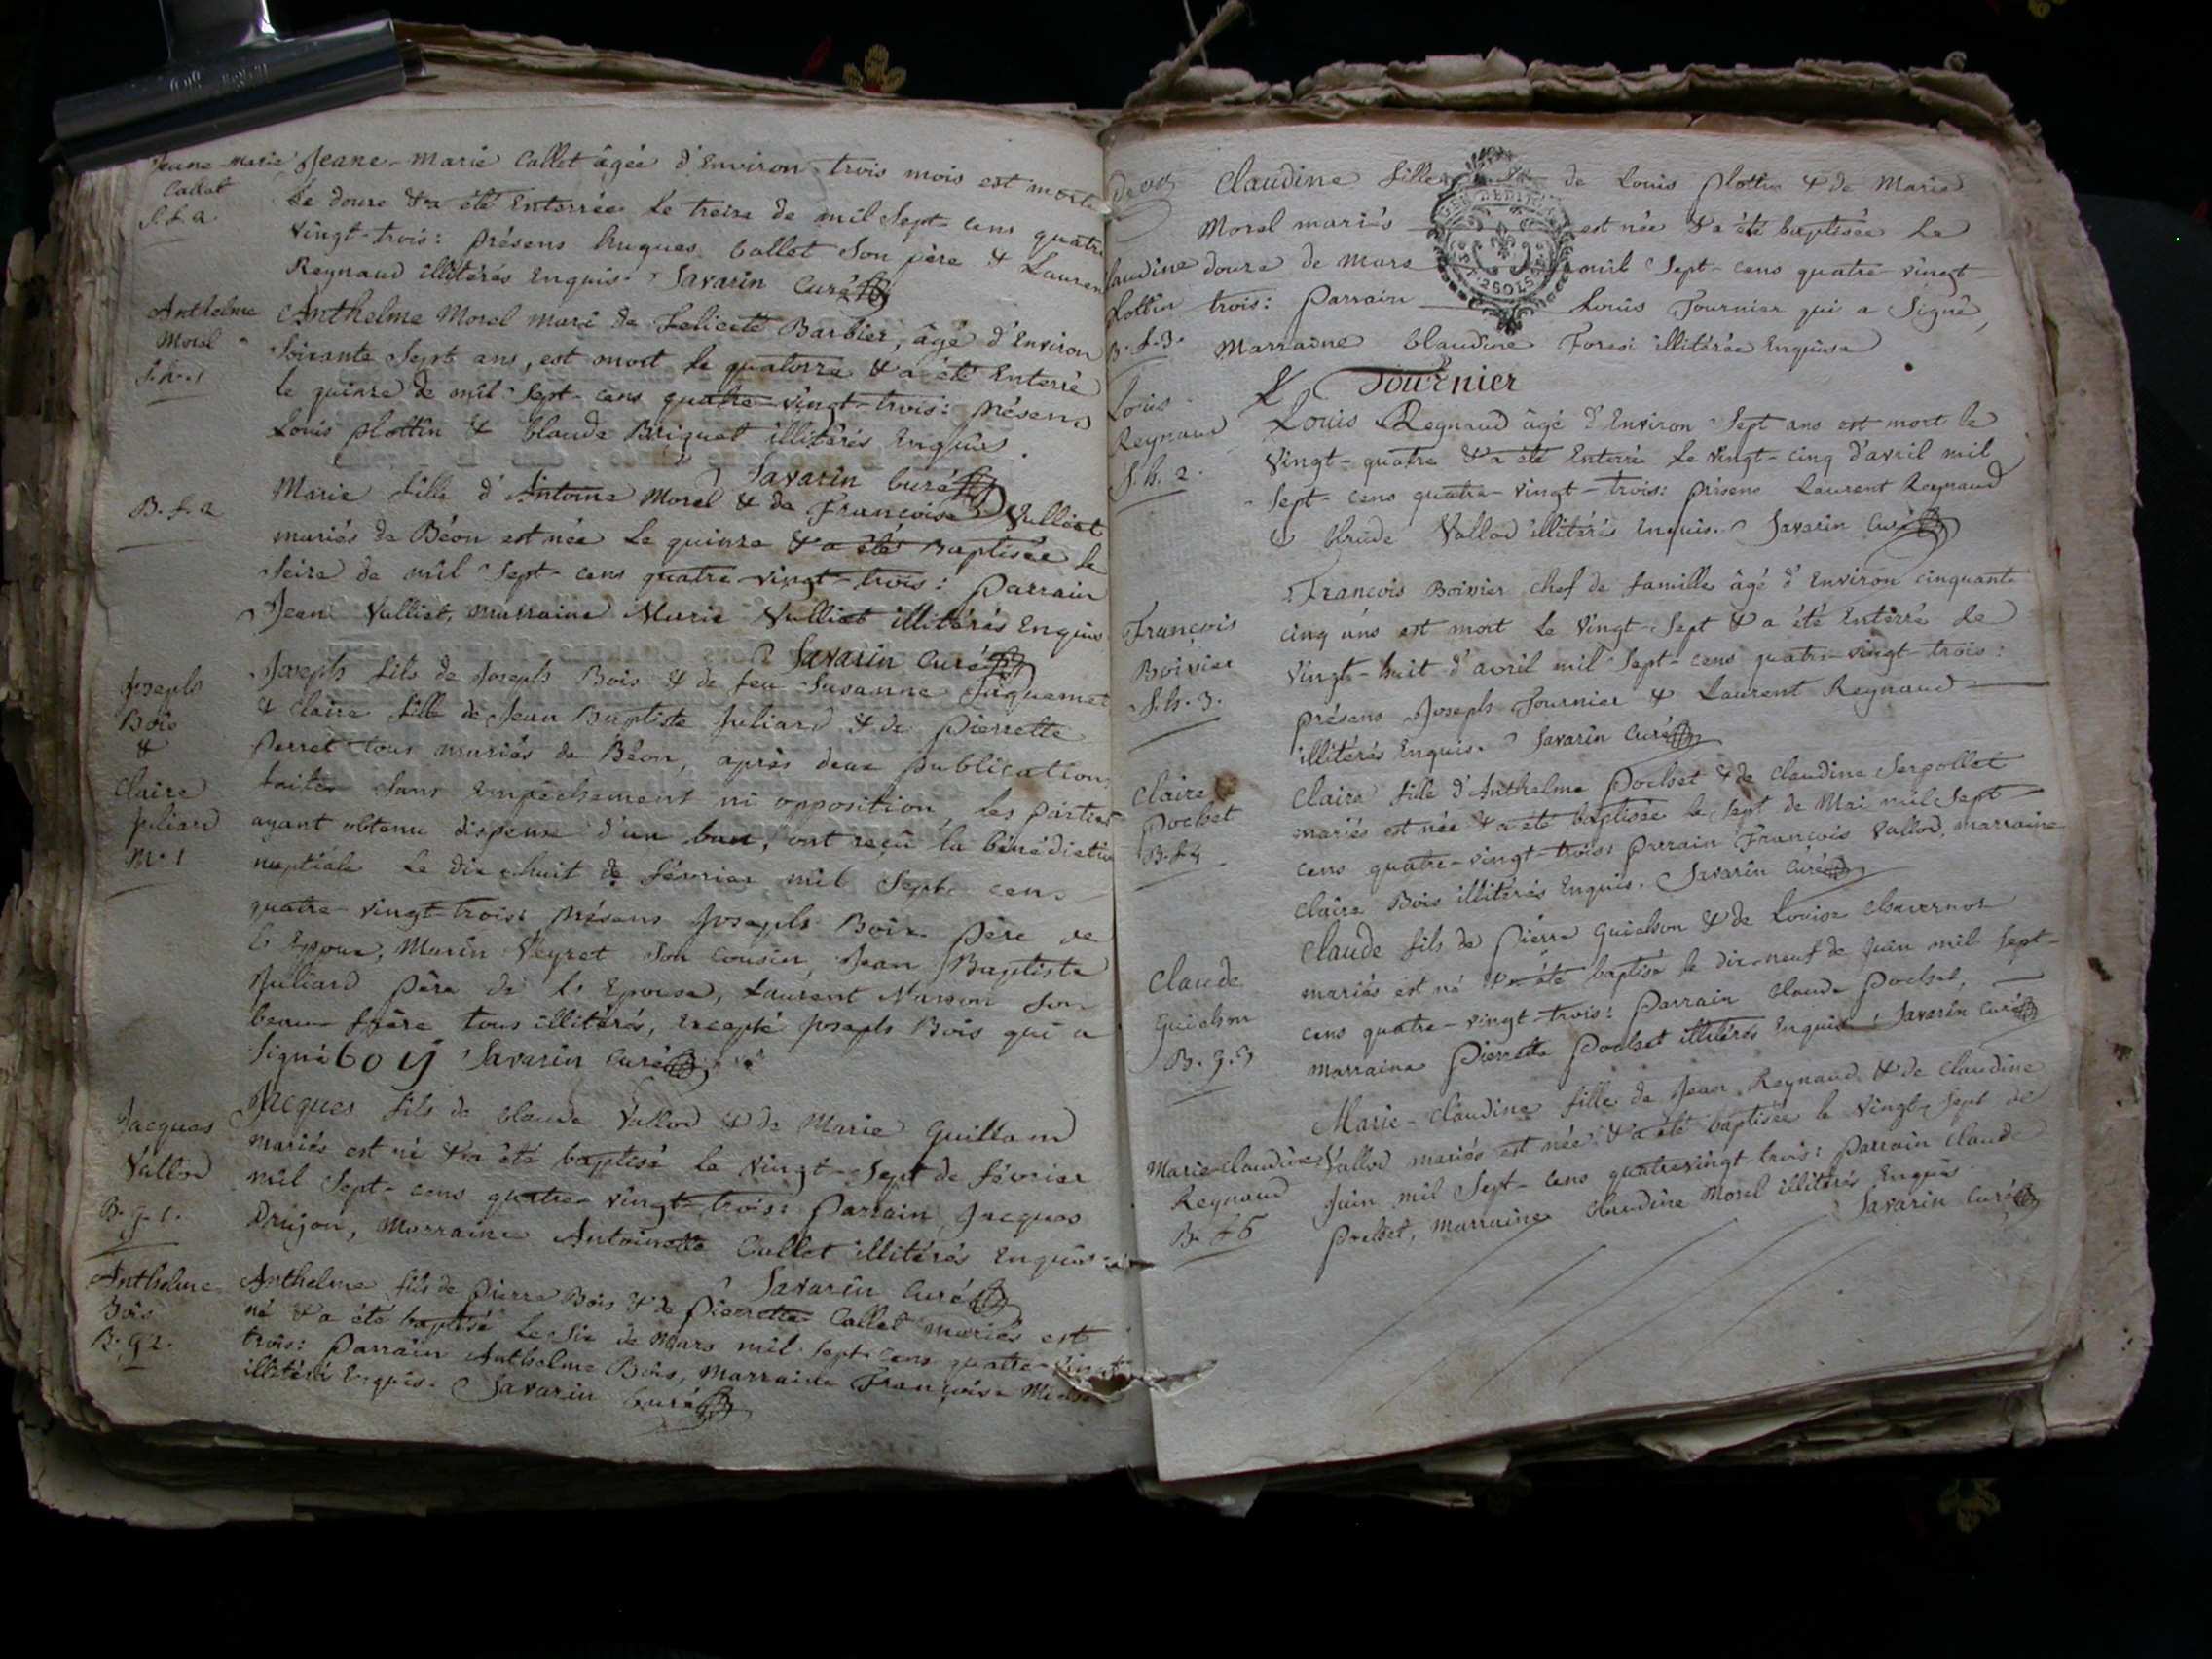 Jeane-marie
Callet
S.f.2
Jeane-Marie Callet âgée d'Environ trois mois est morte
le douze & a été Enterrée le treize de mil Sept-cens quatre
vingt-trois: présens hugues Callet Son père & Lauren
Reynaud illitérés Enquis. Savarin Curé
Anthelme
Morel
S.h.1
Anthelme Morel mari de felicité Barbier, âgé d'Environ
Soixante Sept ans, est mort le quatorze & a été Enterré
le quinze de mil Sept-cens quatre-vingt-trois: présens
Louis plottin & Claude Briquet illitérés Enquis.
Savarin Curé
B.f.2
Marie fille d'Antoine Morel & de Françoise Vulliet
mariés de Béon est née le quinze & a été Baptisée le
Seize de mil Sept-cens quatre-vingt-trois: parrain
Jean Vulliet, marraine Marie Vulliet illitérés Enquis
Savarin Curé
Joseph
Bois
&
Claire
juliard
M.1
Joseph fils de Joseph Bois & de feu Susanne
& Claire fille de Jean Baptiste Juliard & de pierrette
Perret tous mariés de Béon, après deux publications
faites Sans Empêchement ni opposition, les parties
ayant obtenu dispense d'un ban, ont reçu la bénédiction
nuptiale le dix-huit de février mil Sept-cens
quatre-vingt-trois: présens Joseph Bois père de
l'Epoux, Marin Veyret Son Cousin, Jean Baptiste
Juliard père de l'Epouse, Laurent Masson Son
beau frère tous illitérés, Excepté Joseph Bois qui a
Signé boy Savarin Curé
Jacques
Vallod
B.g.1.
Jacques fils de Claude Vallod & de Marie Guilland
mariés est né & a été baptisé le vingt-Sept de février
mil Sept-cens quatre-vingt-trois: parrain Jacques
Drujon, Marraine Antoinette Callet illitérés Enquis
Savarin Curé
Anthelme
Bois
B.g2.
Anthelme fils de pierre Bois & de pierrette Callet mariés est
né & a été baptisé le Six de Mars mil Sept-cens quatre-vingt
trois: parrain Anthelme Bois, Marraine Françoise
illitérés Enquis. Savarin Curé
Claudine
plottin
B.f.3.
Claudine fille de Louis plottin & de Marie
Morel mariés est née & a été baptisée le
douze de Mars mil Sept-cens quatre-vingt
trois: parrain Louis Fournier qui a Signé,
Marraine Claudine illitérée Enquise
L Fournier
Louis
Reynaud
S.h.2.
Louis Reynaud âgé d'Environ Sept ans est mort le
Vingt-quatre & a été Enterré le Vingt-cinq d'avril mil
Sept-cens quatre-vingt-trois: présens Laurent Reynaud
& Vallod illitérés Enquis. Savarin Curé
François
Boivier
S.h.3.
François Boivier chef de famille âgé d'Environ cinquante
cinq ans est mort le Vingt-Sept & a été Enterré le
Vingt-huit d'avril mil Sept-cens quatre-vingt-trois:
présens Joseph Fournier & Laurent Reynaud
illitérés Enquis. Savarin Curé
Claire
Pochet
B.f.4
Claire fille d'Anthelme Pochet & de Claudine Serpollet
mariés est née & a été baptisée le Sept de Mai mil Sept
cens quatre-vingt-trois: parrain François Vallod, marraine
Claire Bois illitérés Enquis. Savarin Curé
Claude
Guichon
B.g.3
Claude fils de pierre Guichon & de Louise
mariés est né & a été baptisé le dix-neuf de Juin mil Sept-
cens quatre-vingt-trois: parrain Claude Pochet,
marraine pierrette Pochet illitérés Enquis Savarin Curé
Marie-Claudine
Reynaud
B.f.5
Marie-Claudine fille de Jean Reynaud & de Claudine
Vallod mariés est née & a été baptisée le Vingt-Sept de
Juin mil Sept-cens quatre vingt-trois: parrain Claude
pochet, marraine Claudine Morel illitérés Enquis
Savarin Curé